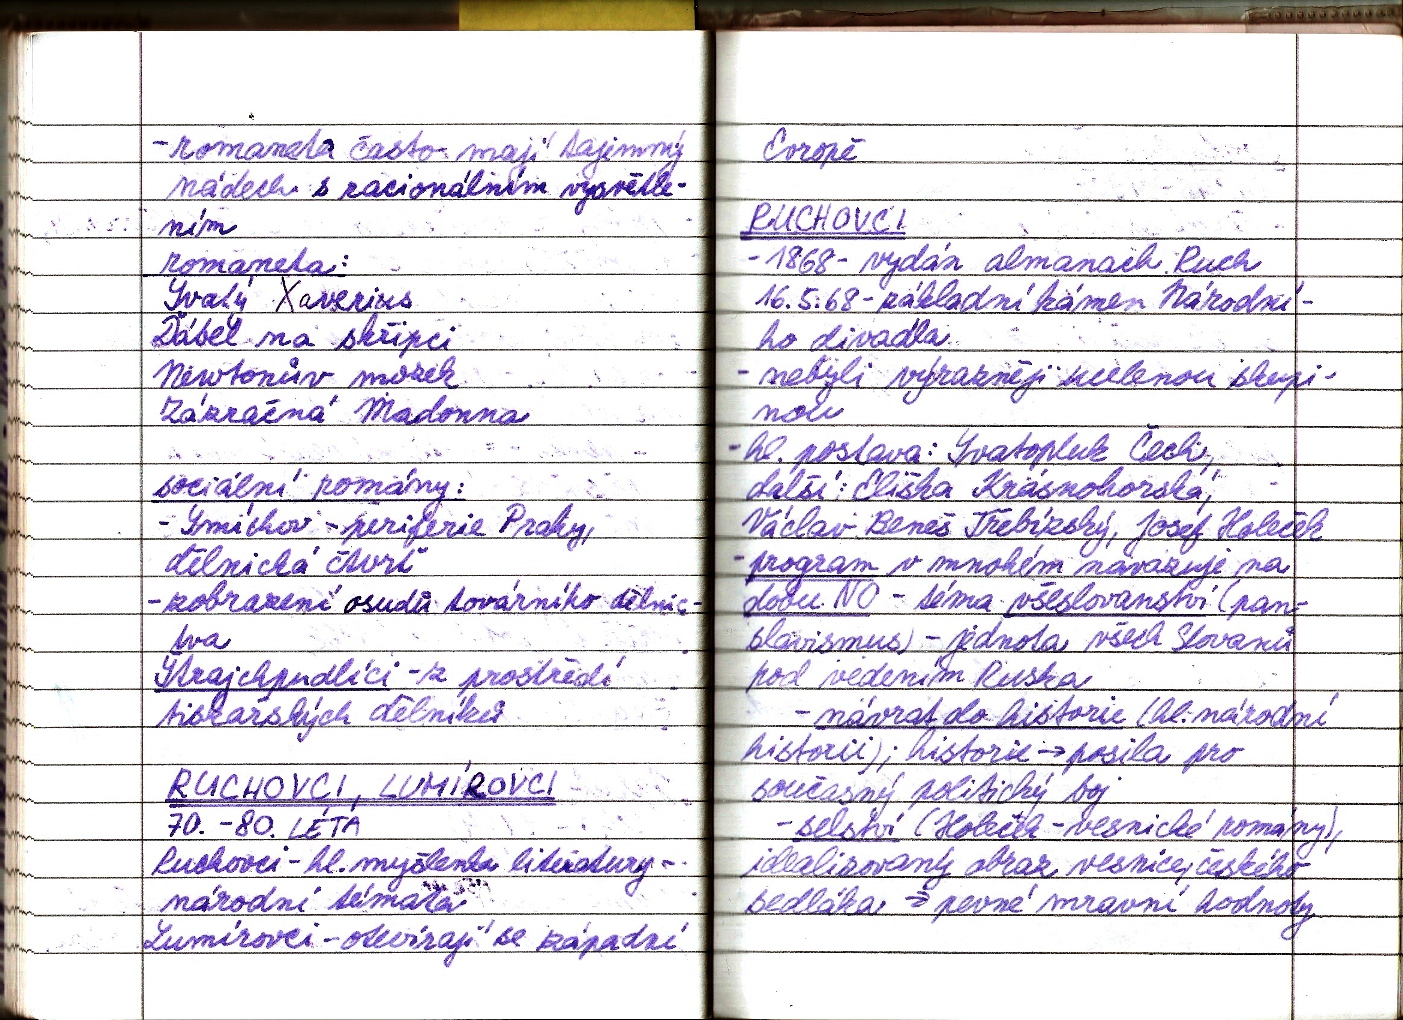 - romaneta často mají tajemný
nádech s racionálním vysvětle-
ním
romaneta:
Svatý Xaverius
Ďábel na skřipci
Newtonův mozek
Zázračná Madonna
sociální romány:
- Smíchov - periferie Prahy,
dělnická čtvrť
- zobrazení osudů továrního dělnic-
tva
Štrajchpudlíci - z prostředí
tiskařských dělníků
RUCHOVCI, LUMÍROVCI
70. - 80. LÉTA
Ruchovci - hl. myšlenka literatury -
národní témata
Lumírovci - otevírají se západní
Evropě
RUCHOVCI
- 1868 - vydán almanach Ruch
16.5.68 - základní kámen Národní-
ho divadla
- nebyli výrazněji ucelenou skupi-
nou
- hl. postava: Svatopluk Čech,
další: Eliška Krásnohorská,
Václav Beneš Třebízský, Josef Holeček
- program v mnohém navazuje na
dobu NO - téma všeslovanství (pan-
slavismus) - jednota všech Slovanů
pod vedením Ruska
- návrat do historie (hl. národní
historii); historie → posila pro
současný politický boj
- selství (Holeček - vesnické romány),
idealizovaný obraz vesnice, českého
sedláka ⇒ pevné mravní hodnoty